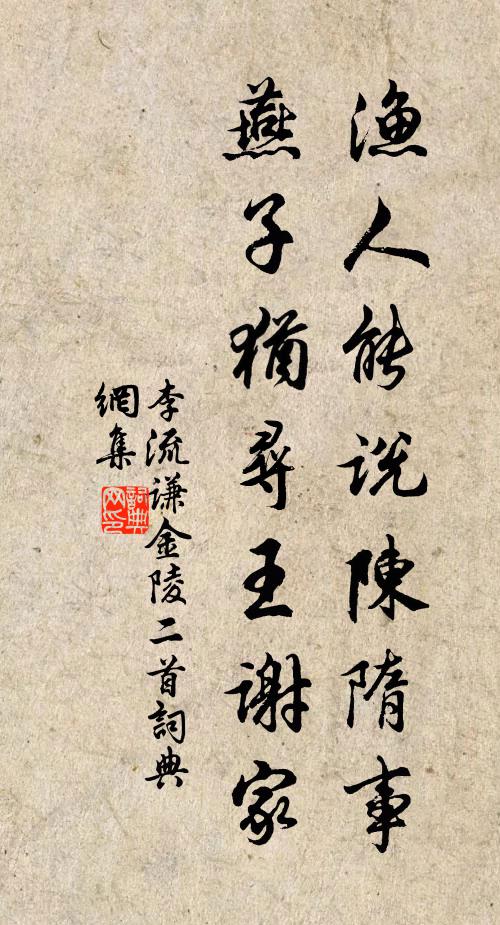 漁人能说陳隋事
燕子猶尋王谢家
李流谦金陵二首詞典
網集
詞典
网印